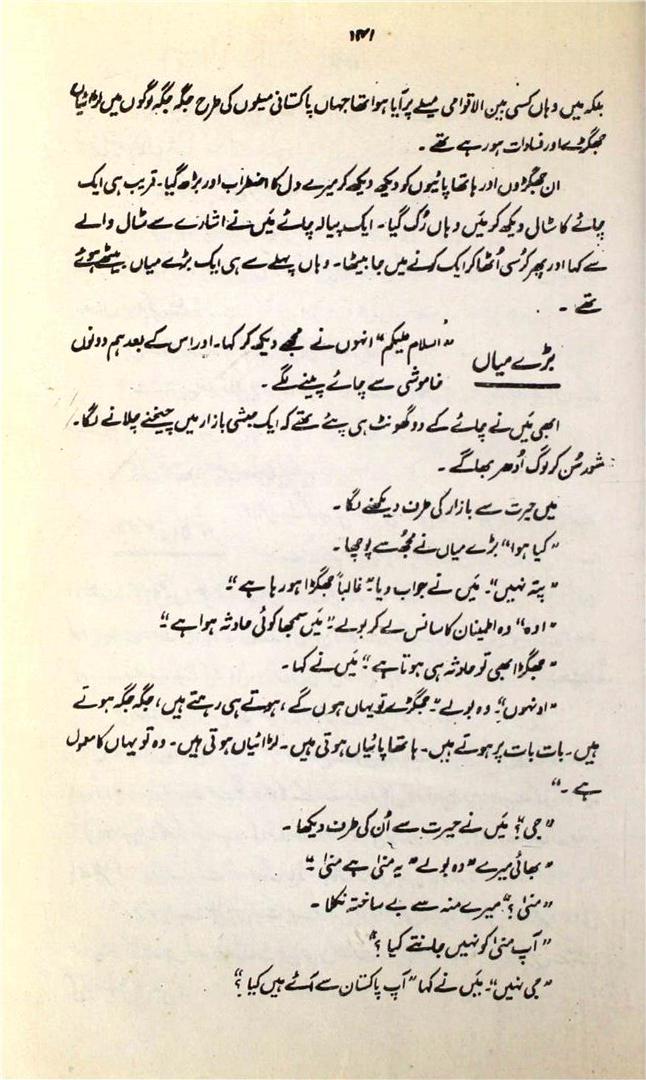 ۱۴۱
بلکہ میں وہاں کسی بین الاقوامی میلے پر آیا ہوا تھا جہاں پاکستانی میلوں کی طرح جگہ جگہ لوگوں میں لڑائیاں
جھگڑے اور فسادات ہو رہے تھے ۔
ان جھگڑوں اور ہاتھا پائیوں کو دیکھ دیکھ کر میرے دل کا اضطراب اور بڑھ گیا۔ قریب ہی ایک
چائے کا سٹال دیکھ کر میَں وہاں رُک گیا۔ ایک پیالہ چائے میَں نے اشارے سے سٹال والے
سے کہا اور پھر کُرسی اُٹھا کر ایک کونے میں جا بیٹھا۔ وہاں پہلے سے ہی ایک بڑے میاں بیٹھے ہوئے
تھے ۔
بڑے میاں
"اُسلام علیکم" انہوں نے مجھے دیکھ کر کہا۔ اور اس کے بعد ہم دونوں
خاموشی سے چائے پینے لگے ۔
ابھی میَں نے چائے کے دو گھونٹ ہی پئے تھے کہ ایک حبشی بازار میں چیخنے چلانے لگا۔
شور سُن کر لوگ اُدھر بھاگے ۔
میں حیرت سے بازار کی طرف دیکھنے لگا ۔
"کیا ہوا" بڑے میاں نے مجھُ سے پوچھا ۔
"پتہ نہیں"۔ میَں نے جواب دیا "غالباً جھگڑا ہو رہا ہے"۔
"اوہ" وہ اطمینان کا سانس لے کر بولے "میَں سمجھا کوئی حادثہ ہوا ہے"
"جھگڑا بھی تو حادثہ ہی ہوتا ہے" میَں نے کہا۔
"اونہوں"۔ وہ بولے "جھگڑے تو یہاں ہوں گے ، ہوتے ہی رہتے ہیں ، جگہ جگہ ہوتے
ہیں۔ بات بات پر ہوتے ہیں۔ ہاتھا پائیاں ہوتی ہیں۔ لڑائیاں ہوتی ہیں۔ وہ تو یہاں کا معمول
ہے ۔"
"جی ؟" میَں نے حیرت سے اُن کی طرف دیکھا ۔
"بھائی میرے" وہ بولے "یہ منیٰ ہے منیٰ"۔
"منیٰ ؟" میرے منہ سے بے ساختہ نکلا ۔
"آپ منیٰ کو نہیں جانتے کیا ؟"
"جی نہیں"۔ میَں نے کہا "آپ پاکستان سے آئے ہیں کیا ؟"